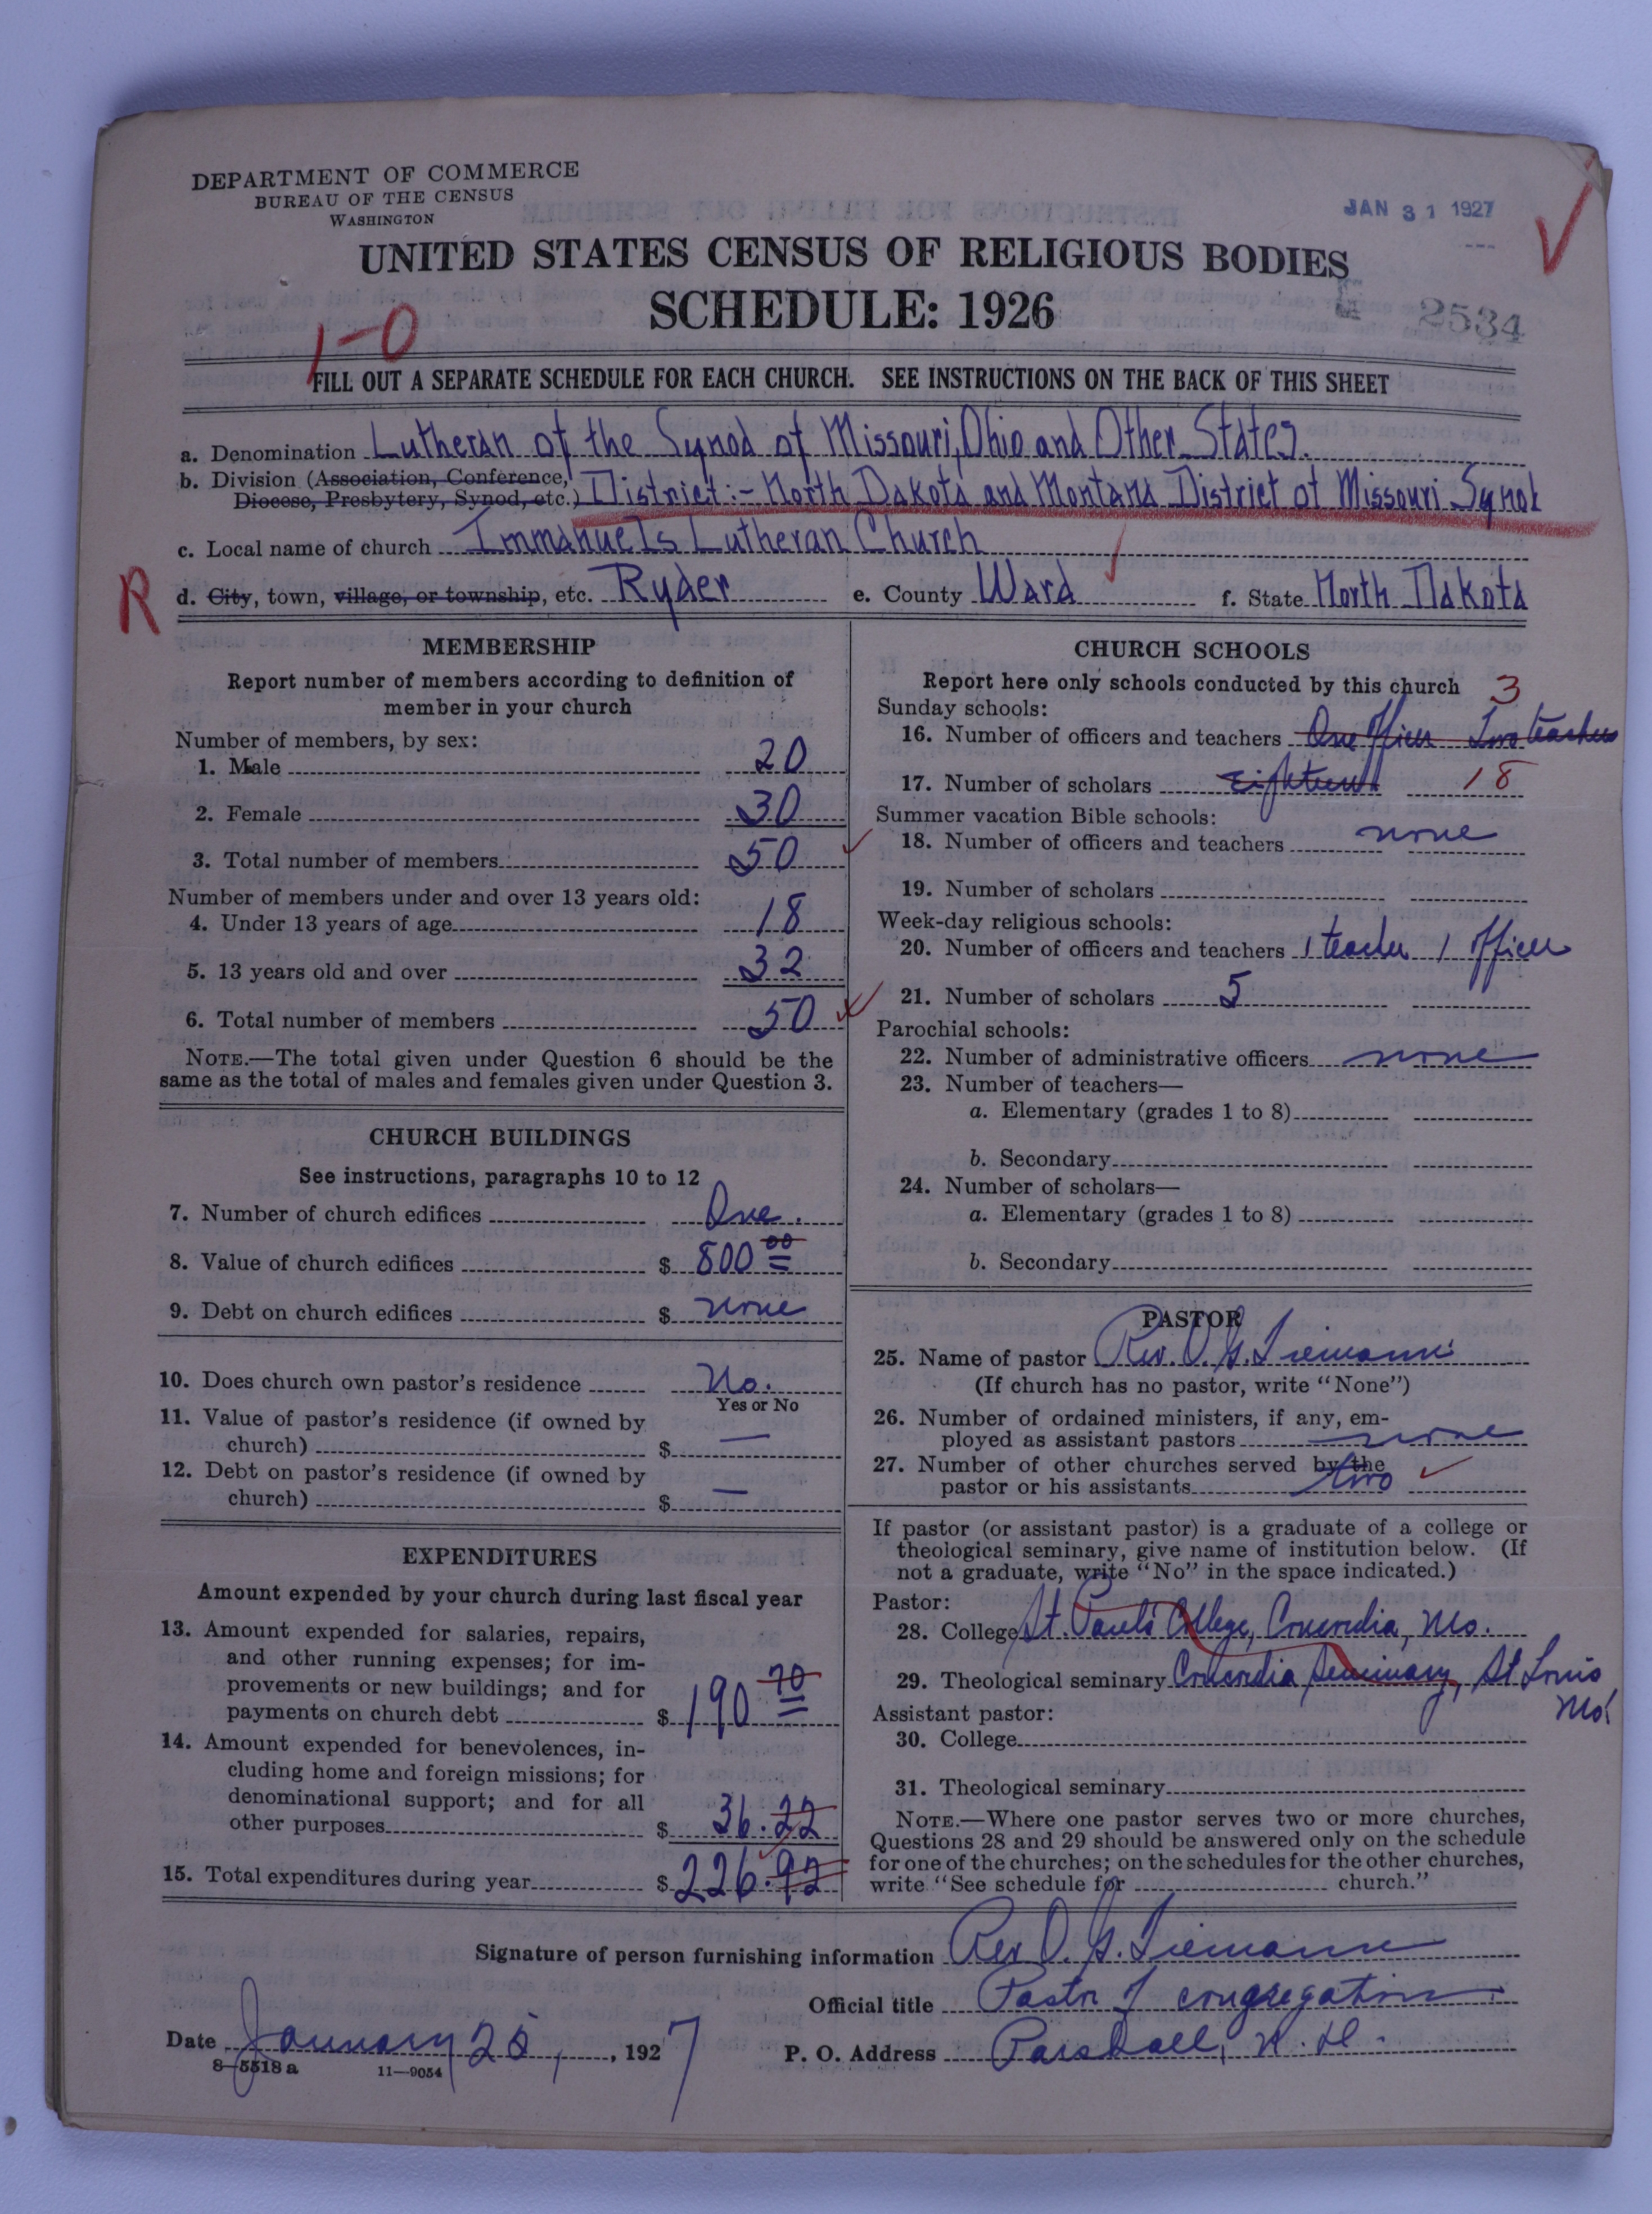 DEPARTMENT OF COMMERCE
BUREAU OF THE CENSUS
WASHINGTON
JAN 31 1927
UNITED STATES CENSUS OF RELIGIOUS BODIES
SCHEDULE: 1926
2534
1-0
FILL OUT A SEPARATE SCHEDULE FOR EACH CHURCH. SEE INSTRUCTIONS ON THE BACK OF THIS SHEET
a. Denomination Lutheran of the Synod of Missouri, Ohio and Other States.
b. Division (Association, Conference,
Diocese, Presbytery, Synod, etc.) District:- North Dakota and Montana District of Missouri Synod
c. Local name of church Immanuels Lutheran Church
R d. City, town, village, or township, etc. Ryder e. County Ward f. State North Dakota
MEMBERSHIP
Report number of members according to definition of
member in your church
Number of members, by sex:
1. Male 20
2. Female 30
3. Total number of members 50
Number of members under and over 13 years old:
4. Under 13 years of age 18
5. 13 years old and over 32
6. Total number of members 50
NOTE.—The total given under Question 6 should be the
same as the total of males and females given under Question 3.
CHURCH BUILDINGS
See instructions, paragraphs 10 to 12
7. Number of church edifices One.
8. Value of church edifices $ 800 00
9. Debt on church edifices $ none
10. Does church own pastor's residence No.
Yes or No
11. Value of pastor's residence (if owned by
church) $ —
12. Debt on pastor's residence (if owned by
church) $ —
EXPENDITURES
Amount expended by your church during last fiscal year
13. Amount expended for salaries, repairs,
and other running expenses; for im-
provements or new buildings; and for
payments on church debt $ 190 70
14. Amount expended for benevolences, in-
cluding home and foreign missions; for
denominational support; and for all
other purposes $ 36.22
15. Total expenditures during year $ 226.92
CHURCH SCHOOLS
Report here only schools conducted by this church
Sunday schools: 3
16. Number of officers and teachers One officer Two teachers
17. Number of scholars Eighteen 18
Summer vacation Bible schools:
18. Number of officers and teachers none
19. Number of scholars
Week-day religious schools:
20. Number of officers and teachers 1 teacher 1 officer
21. Number of scholars 5
Parochial schools:
22. Number of administrative officers none
23. Number of teachers—
a. Elementary (grades 1 to 8)
b. Secondary
24. Number of scholars—
a. Elementary (grades 1 to 8)
b. Secondary
PASTOR
25. Name of pastor Rev. O. H. Tiemann
(If church has no pastor, write "None")
26. Number of ordained ministers, if any, em-
ployed as assistant pastors none
27. Number of other churches served by the
pastor or his assistants two
If pastor (or assistant pastor) is a graduate of a college or
theological seminary, give name of institution below. (If
not a graduate, write "No" in the space indicated.)
Pastor:
28. College St. Paul's College, Concordia, Mo.
29. Theological seminary Concordia Seminary, St Louis
Mo.
Assistant pastor:
30. College
31. Theological seminary
NOTE.—Where one pastor serves two or more churches,
Questions 28 and 29 should be answered only on the schedule
for one of the churches; on the schedules for the other churches,
write "See schedule for church."
Signature of person furnishing information Rev O. H. Tiemann
Official title Pastor of congregation.
Date January 25, 1927
P. O. Address Parshall, N. D.
8-5518 a 11-9054